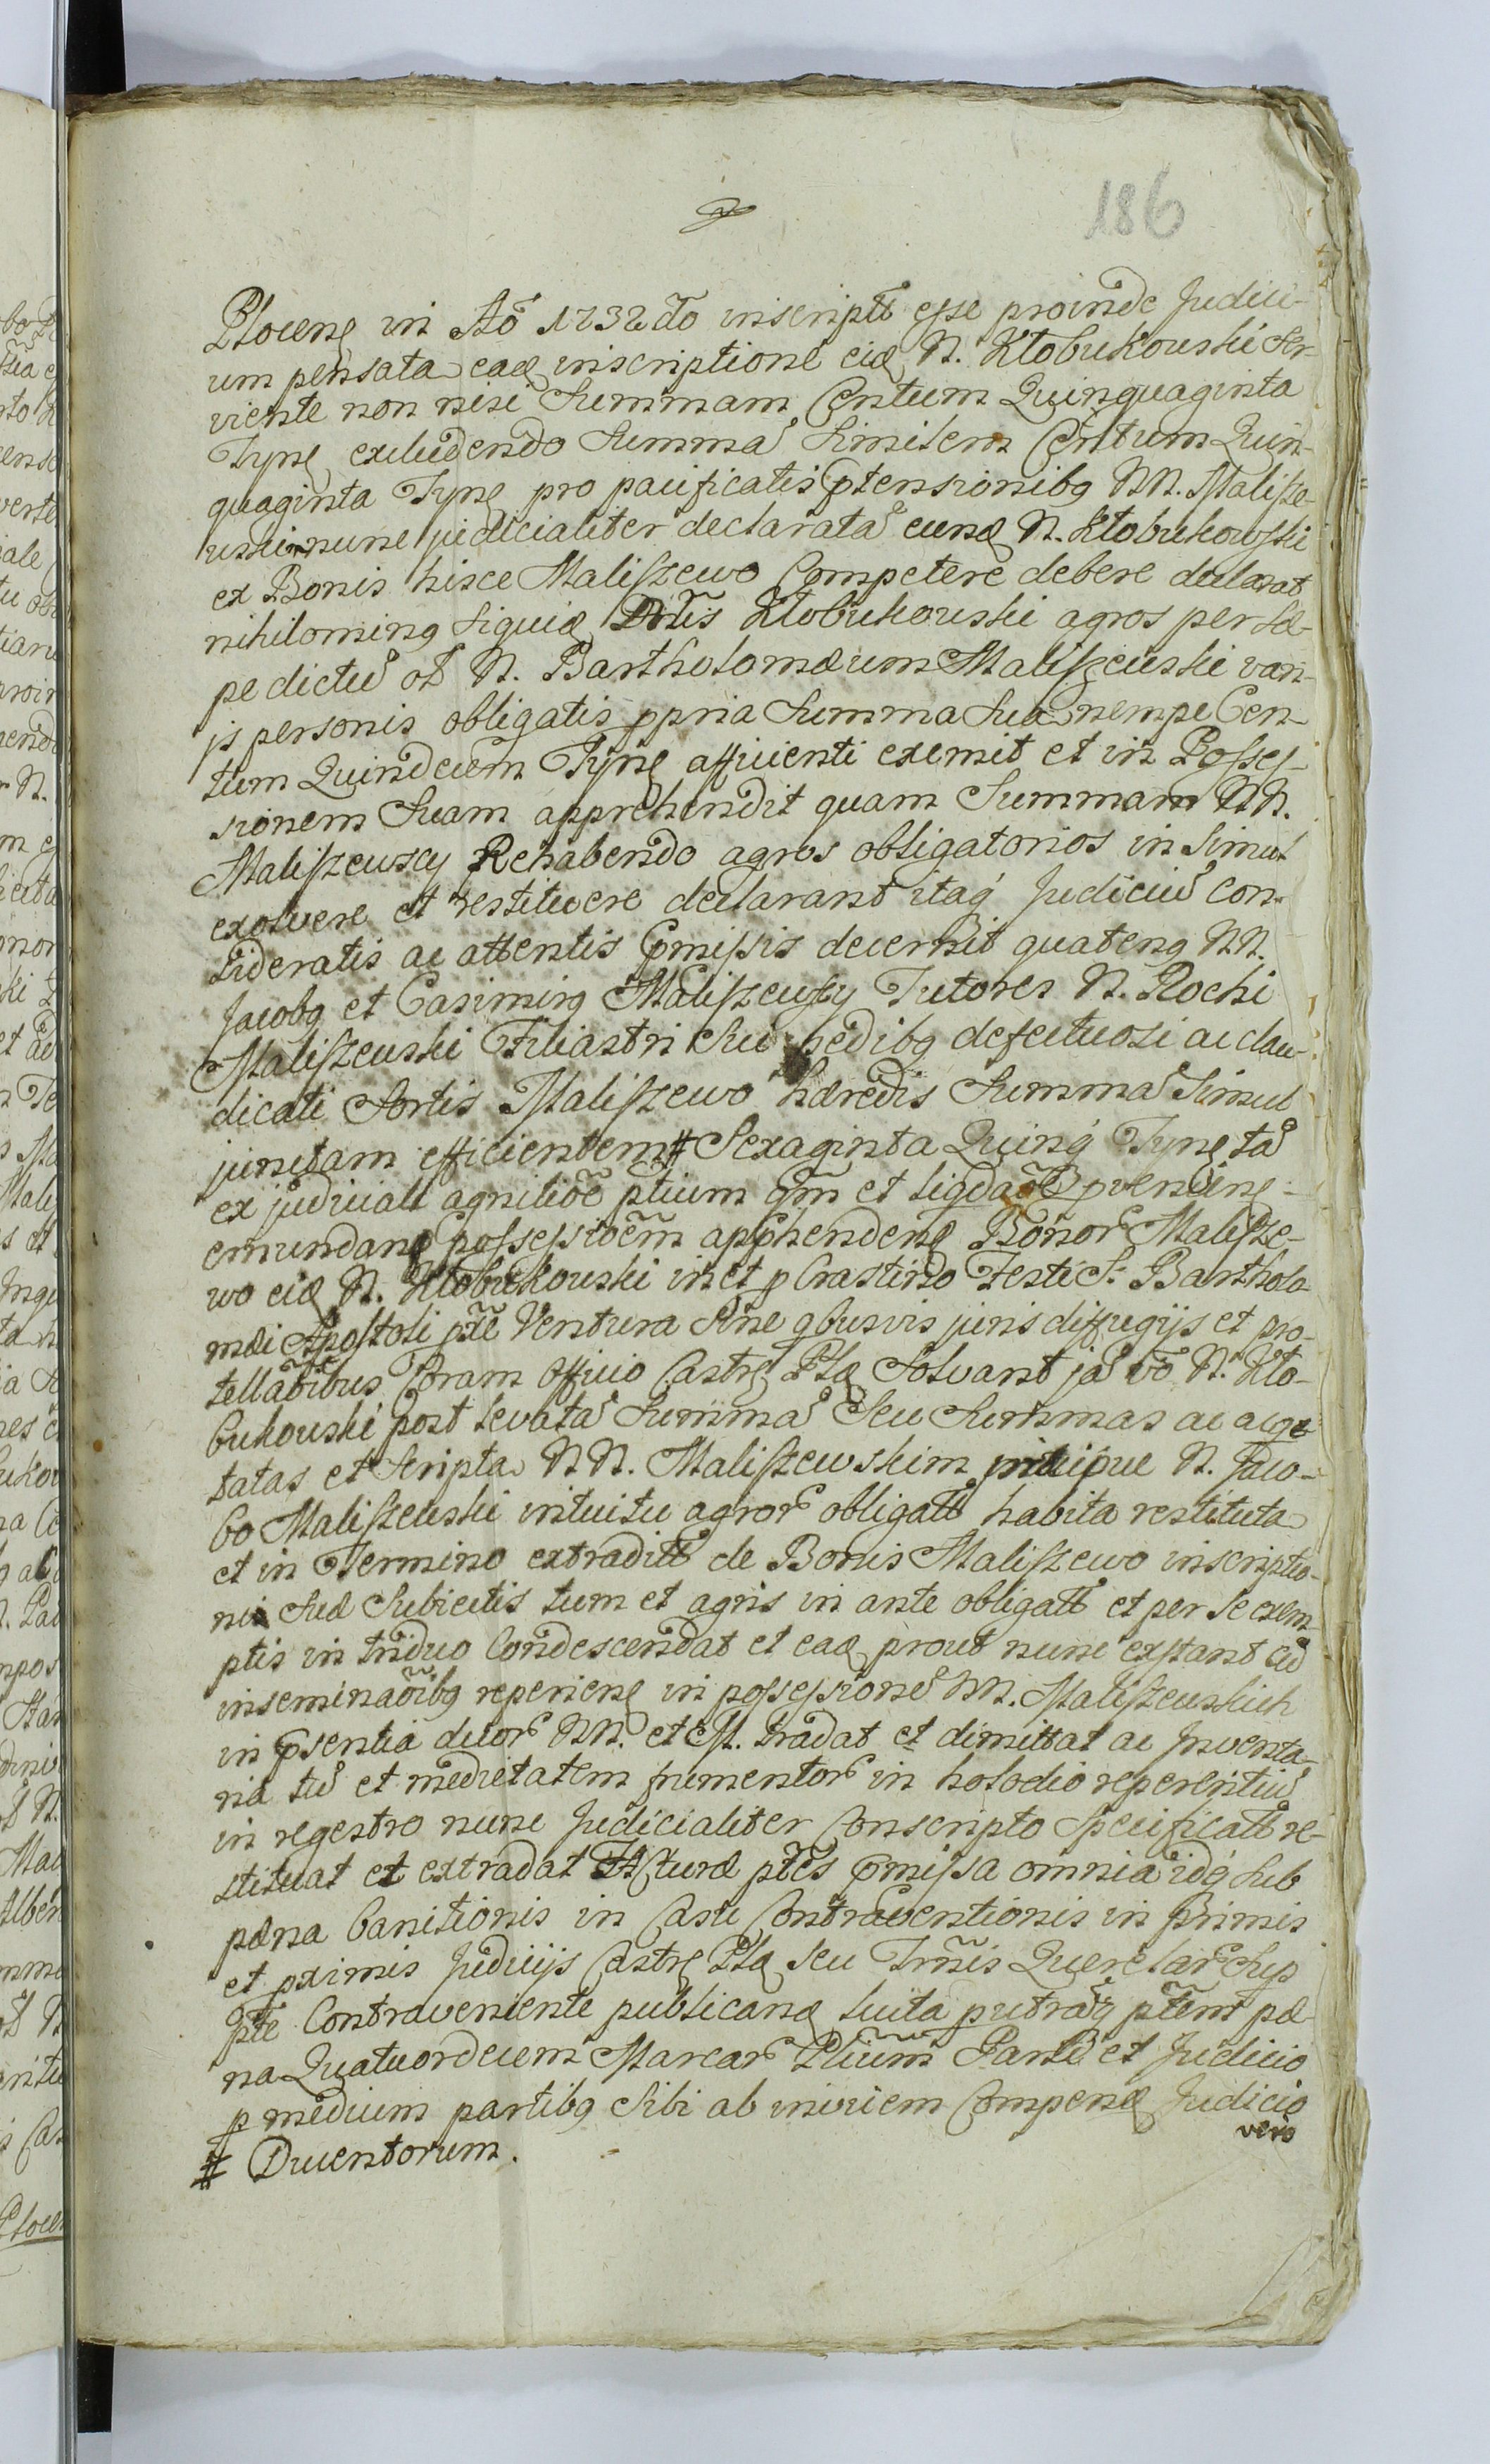 186
Plocens in Aō 1732do inscriptt esse proinde Judici-
um pensata eaq inscriptione eiq N. Kłobukowski ser-
viente non nisi Summam Centum Quinquaginta
Tynf excludendo Summā Similem Centum Quin-
quaginta Tynf pro pacificatis ptensionibq NN. Malisze-
wskim nunc judicialiter declaratā eunq N. Kłobukowski
ex Bonis hisce Maliszewo Competere debere declarat
nihilominq siquiq Kłobukowski agros per sæ-
pe dictū ol N. Bartholomæum Maliszewski vari-
js personis obligatis ppria Summa Sua nempe Cen-
tum Quindecem Tynf afficienti exemit et in Posses-
sionem Suam apprehendit quam Summam NN.
Maliszewscy Rehabendo agros obligatorios in simul
exolvere et restituere declarant itaq́ Judiciū con-
sideratis ac attentis pmissis decernit quatenq NN.
Jacobq et Casimirq Maliszewscy Tutores N. Rochi
Maliszewski Filiastri sui pedibq defectuosi ac clau-
dicati Sortis Maliszewo hæredis Summā Simul
junctam efficientem # Sexaginta Quinq́ Tynf tā
ex judiciali agnitiōe ptium qm̄ et
emundanq possessioēm apphendenq Bonor Malisze-
wo eiq N. Kłobukowski in et p Crastino Festi S: Bartholo-
mæi Apostoli pte Ventura Sine qbusvis juris diffugijs et pro-
tellāōibus Coram Officio Castrē Plq Solvant jā vō N. Kło-
bukowski post levatā Summā Seu Summas ac
tatas et Scripta NN. Maliszewskim N. Jaco-
bo Maliszewski intuitu agror obligatt habita restituta
et in Termino extraditt de Bonis Maliszewo inscriptio-
ni Suæ Subiectis tum et agris in ante obligatt et per se exem-
ptis in triduo Condescendat et eaq prout nunc exstant cū
insemināōibq reperienq in possessionē NN. Maliszewskich
in psentia duor NN. et M. tradat et dimittat ac Inventa-
ria tū et medietatem frumentor in holodio reperentiū
in regestro nunc Judicialiter Conscripto Specificatt re-
stituat et extradat ptes pmissa omnia idq́ Sub
pæna banitionis in Casu Contraventionis in primis
et pximis Judicijs Castrē Plq seu Trm̄is Querelar Sup
pte Contraveniente publicanq luita ptem pæ-
na Quatuordecem Marcar Pliūm Parti et Judicio
p medium partibq Sibi ab invicem Compenq Judicio
vero
# Ducentorum.